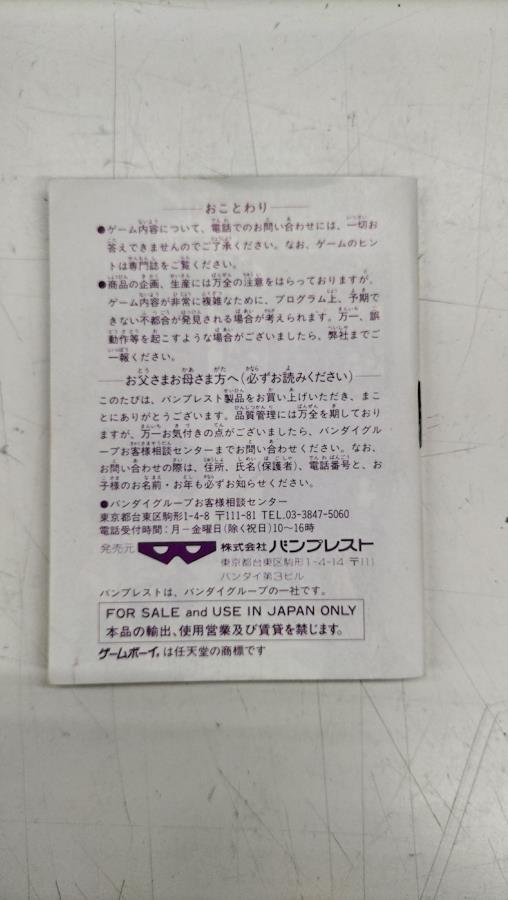 おことわり
●ゲーム内容について、電話でのお問い合わせには、一切お
答えできませんのでご了承ください。なお、ゲームのヒン
トは専門誌をご覧ください。
●商品の企画、生産には万全の注意をはらっておりますが、
ゲーム内容が非常に複雑なために、プログラム上、予期で
きない不都合が発見される場合が考えられます。万一、誤
動作等を起こすような場合がございましたら、弊社までご
一報ください。
お父さまお母さま方へ(必ずお読みください)
このたびは、バンプレスト製品をお買い上げいただき、まこ
とにありがとうございます。品質管理には万全を期しており
ますが、万一お気付きの点がございましたら、バンダイグル
ープお客様相談センターまでお問い合わせください。なお、
お問い合わせの際は、住所、氏名(保護者)、電話番号と、お
子様のお名前・お年も必ずお知らせください。
●バンダイグループお客様相談センター
東京都台東区駒形1-4-8 〒111-81 TEL.03-3847-5060
電話受付時間:月-金曜日(除く祝日)10~16時
発売元 株式会社バンプレスト
東京都台東区駒形1-4-14 〒111
バンダイ第3ビル
バンプレストは、バンダイグループの一社です。
FOR SALE and USE IN JAPAN ONLY
本品の輸出、使用営業及び賃貸を禁じます。
ゲームボーイ。は任天堂の商標です